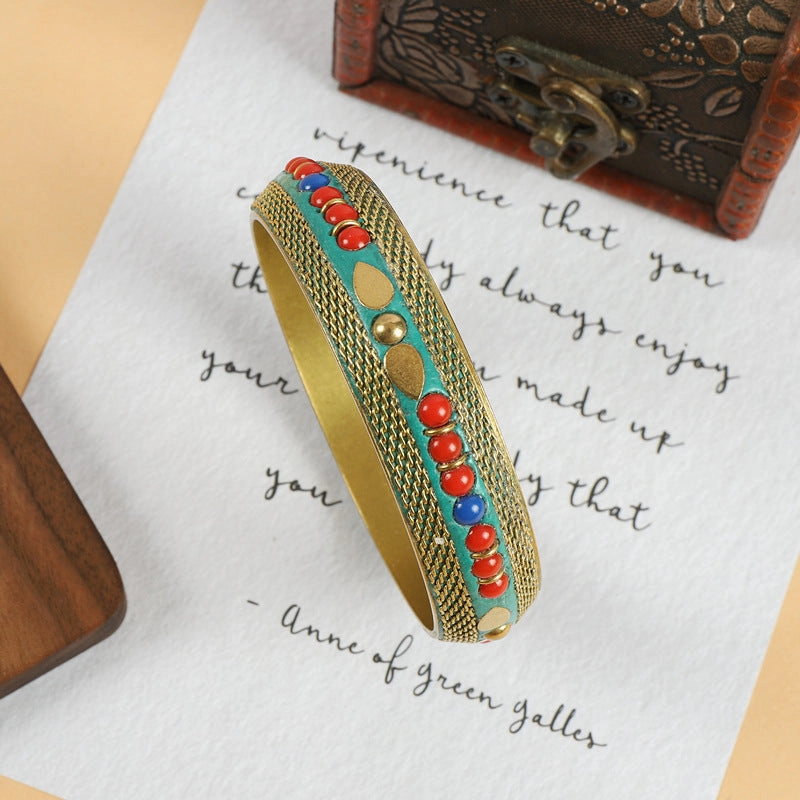 vipenience that you
dy always enjoy
th
your made up
you y that
- Anne of green galles